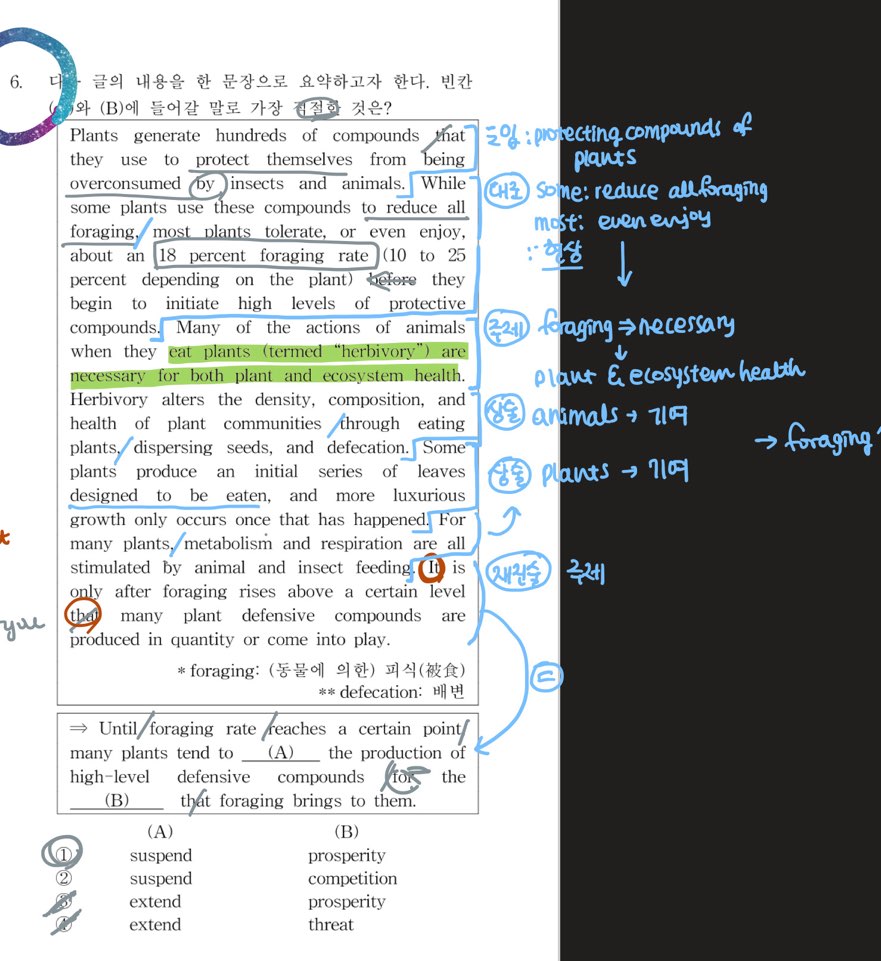 6. 다음 글의 내용을 한 문장으로 요약하고자 한다. 빈칸
(A)와 (B)에 들어갈 말로 가장 적절한 것은?
Plants generate hundreds of compounds that
they use to protect themselves from being
overconsumed by insects and animals. While
some plants use these compounds to reduce all
foraging, most plants tolerate, or even enjoy,
about an 18 percent foraging rate (10 to 25
percent depending on the plant) before they
begin to initiate high levels of protective
compounds. Many of the actions of animals
when they eat plants (termed “herbivory”) are
necessary for both plant and ecosystem health.
Herbivory alters the density, composition, and
health of plant communities through eating
plants, dispersing seeds, and defecation. Some
plants produce an initial series of leaves
designed to be eaten, and more luxurious
growth only occurs once that has happened. For
many plants, metabolism and respiration are all
stimulated by animal and insect feeding. It is
only after foraging rises above a certain level
that many plant defensive compounds are
produced in quantity or come into play.
* foraging: (동물에 의한) 피식(被食)
** defecation: 배변
⇒ Until foraging rate reaches a certain point,
many plants tend to (A) the production of
high-level defensive compounds for the
(B) that foraging brings to them.
(A) (B)
① suspend prosperity
② suspend competition
③ extend prosperity
④ extend threat
도입 : protecting compounds of
plants
대조 some: reduce all foraging
most: even enjoy
현상
주제 foraging ⇒ necessary
↓
plant & ecosystem health
상술 animals → 기여
→ foraging
상술 plants → 기여
재진술 주제
=